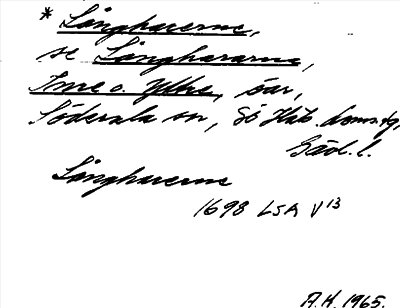 * Långharerne,
se Långhararne,
Inre o. Yttre, öar,
Söderala sn, Sö Häls. domsg,
Gäv. l.
Långharerne
1698 LSA V 13
A.H. 1965.